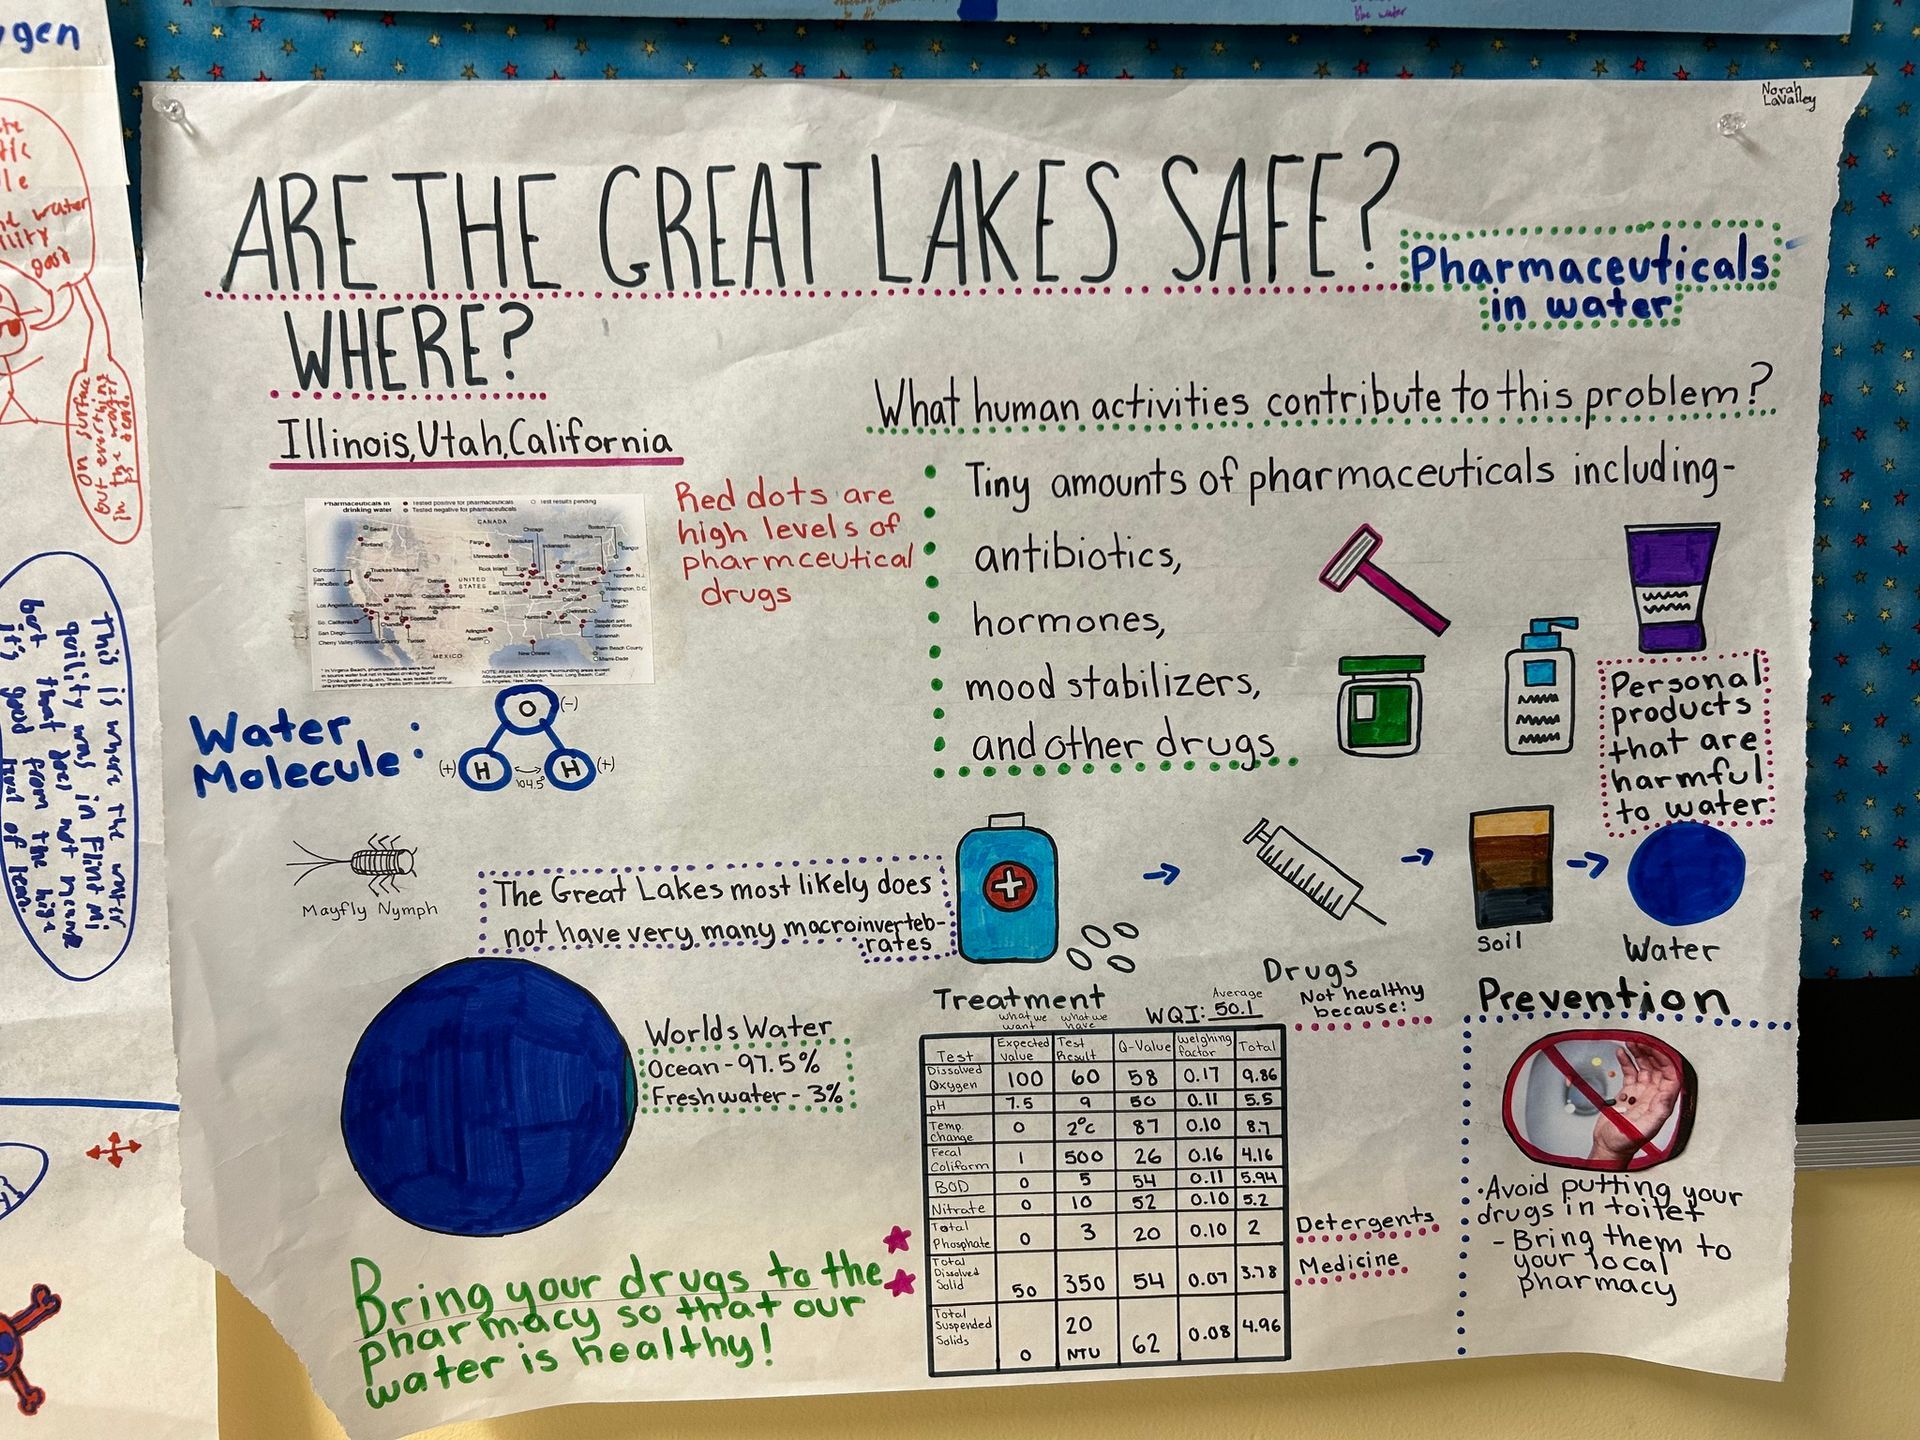 Norah
LaValley
ARE THE GREAT LAKES SAFE?
Pharmaceuticals
in water
WHERE?
Illinois, Utah, California
Red dots are
high levels of
pharmceutical
drugs
Pharmaceuticals in
drinking water
Tested positive for pharmaceuticals
Tested negative for pharmaceuticals
Test results pending
CANADA
UNITED
STATES
MEXICO
What human activities contribute to this problem?
Tiny amounts of pharmaceuticals including-
antibiotics,
hormones,
mood stabilizers,
and other drugs
Personal
products
that are
harmful
to water
Water
Molecule:
O (-)
(+) H H (+)
104.5°
Mayfly Nymph
The Great Lakes most likely does
not have very many macroinverteb-
rates
Soil
Water
Drugs
Treatment
Worlds Water
Ocean - 97.5%
Freshwater - 3%
what we
want
what we
have
WQI: Average 50.1
Not healthy
because:
Test Expected value Test Result Q-Value weighing factor Total
Dissolved Oxygen 100 60 58 0.17 9.86
pH 7.5 9 50 0.11 5.5
Temp. Change 0 2°c 87 0.10 8.7
Fecal Coliform 1 500 26 0.16 4.16
BOD 0 5 54 0.11 5.94
Nitrate 0 10 52 0.10 5.2
Total Phosphate 0 3 20 0.10 2
Total Dissolved Solid 50 350 54 0.07 3.78
Total Suspended Solids 0 20 NTU 62 0.08 4.96
Detergents
Medicine
Prevention
• Avoid putting your
drugs in toilet
- Bring them to
your local
pharmacy
Bring your drugs to the
pharmacy so that our
water is healthy!
This is where the water
quility was in Flint MI
but that does not meane
it's good from the high
level of lean.
on surface
but everything
in the water
is dead.
the water